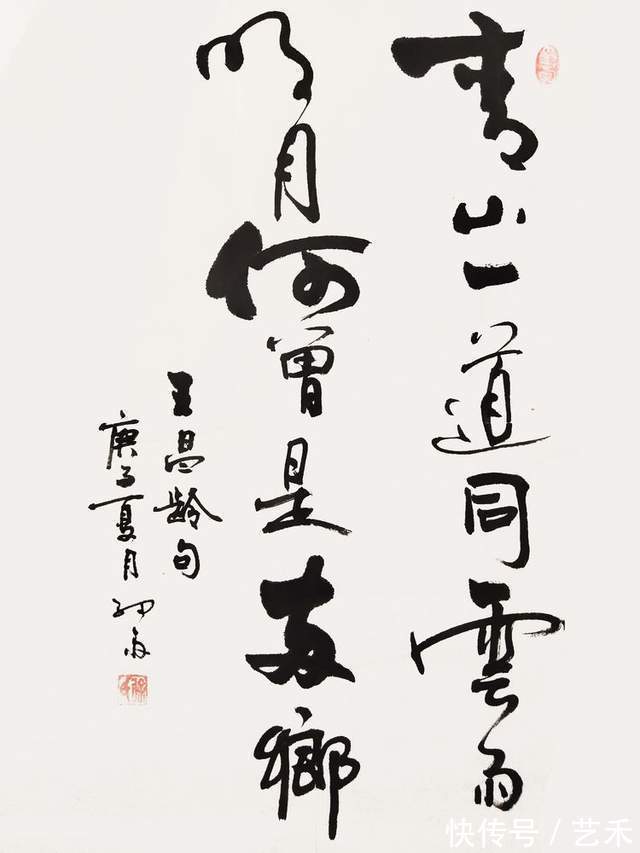 青山一道同雲雨
明月何曾是兩鄉
王昌龄句
庚子夏月
快传号/艺禾